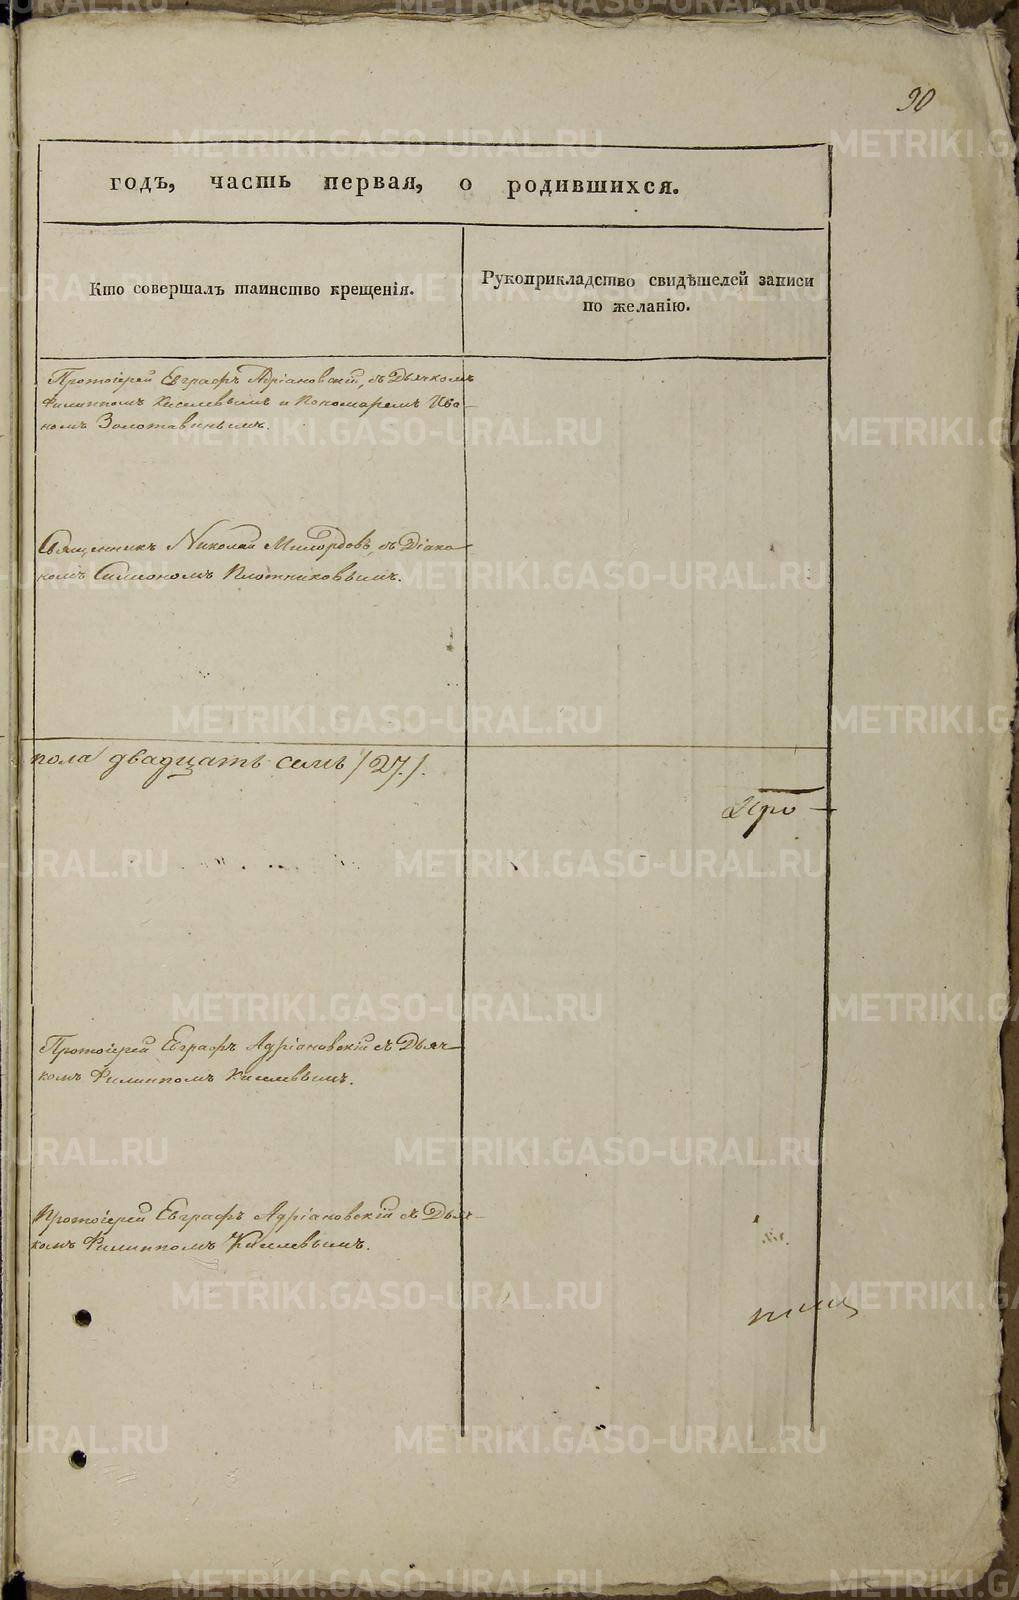 90
годъ, часть первая, о родившихся.
Кто совершалъ таинство крещенія.
Рукоприкладство свидѣтелей записи
по желанію.
Протоіерей Евграфъ Адріановскій, съ Дьячкомъ
Филиппомъ Киселевымъ и Пономаремъ Ива-
номъ Золотавинымъ.
Священникъ Николай Милордовъ, съ Діако-
номъ Симономъ Плотниковымъ.
пола двадцать семь /27./.
Протоіерей Евграфъ Адріановскій съ Дьяч-
комъ Филиппомъ Киселевымъ.
Протоіерей Евграфъ Адріановскій съ Дьяч-
комъ Филиппомъ Киселевымъ.
METRIKI.GASO-URAL.RU